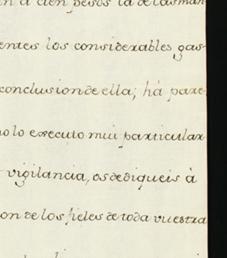 n à cien pesos la de las man
entes los considerables gas-
conclusion de ella; há pare-
olo executo mui particular
vigilancia, os dediqueis à
on de los fieles de toda vuestra